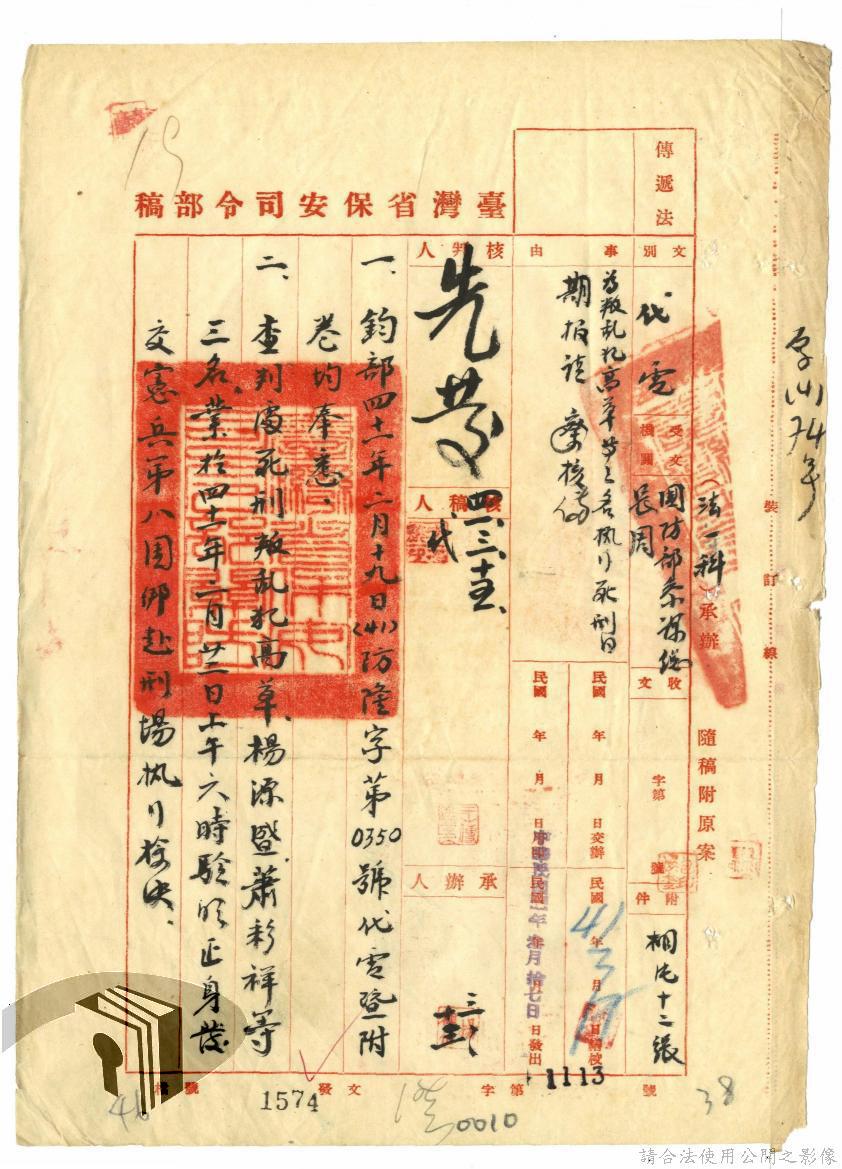 臺灣省保安司令部稿
傳遞法
(法一科)承辦
隨稿附原案
裝訂線
文別
代電
受文機關
國防部參謀總長周
收文
字第
號
附件
相片十二張
事由
為叛乱犯高草等三名执行死刑日期报請鉴核備
民國 年 月 日交辦
民國 年 月 日繕校
41 3
民國 年 月 日
民國 年 月 日發出
中華民國 年叁月拾七日
核判人
核稿人
代
承辦人
一、鈞部四十一年二月十九日(41)防隆字第0350號代電暨附
卷均奉悉、
二、查判處死刑叛乱犯高草、楊源暨蕭彩祥等
三名、業於四十一年二月廿二日上午六時驗明正身發
交憲兵第八團綁赴刑場执行槍決、
號
第
1113
字
發文
1574
檔號
0010
38
請合法使用公開之影像